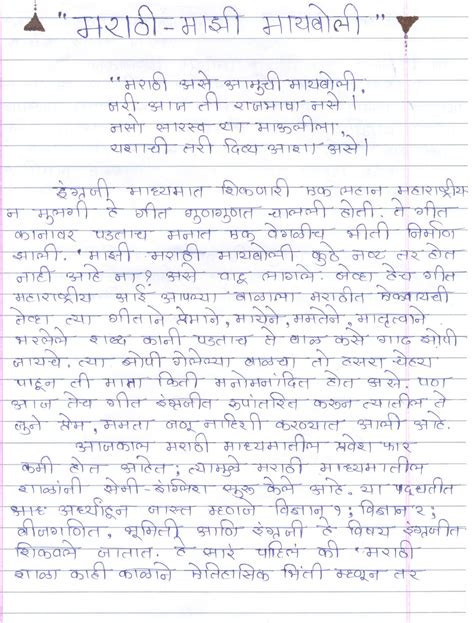 "मराठी-माझी मायबोली"
"मराठी असे आमुची मायबोली,
जरी आज ती राजभाषा नसे।
नसो सारस्व या माऊलीला,
यशाची तरी दिव्य आशा असे।
इंग्रजी माध्यमात शिकणारी एक लहान महाराष्ट्रीय
न मुलगी हे गीत गुणगुणत चालली होती. ते गीत
कानावर पडताच मनात एक वेगळीच भीती निर्माण
झाली. 'माझी मराठी मायबोली कुठे नष्ट तर होत
नाही आहे ना? असे वाटू लागले. जेव्हा हेच गीत
महाराष्ट्रीय आई आपल्या बाळाला मराठीत ऐकवायची
तेव्हा त्या गीताने प्रेमाने, मायेने, ममतेने, मातृत्वाने
भरलेले शब्द कानी पडताच ते बाळ कसे गाढ झोपी
जायचे. त्या झोपी गेलेल्या बाळचा तो हसरा चेहरा
पाहून ती माता किती मनोमनांदित होत असे. पण
आज तेच गीत इंग्रजीत रूपांतरित करून त्यातील ते
जुने प्रेम, ममता जणू नाहिशी करण्यात आली आहे.
आजकाल मराठी माध्यमातील प्रवेश फार
कमी होत आहेत; त्यामुळे मराठी माध्यमातील
शाळांनी सेमी-इंग्लिश सुरू केले आहे. या पद्धतीत
अर्ध्याहून जास्त म्हणजे विज्ञान १; विज्ञान २;
बीजगणित, भूमिती आणि इंग्रजी हे विषय इंग्रजीत
शिकवले जातात. हे सारे पाहिलं की 'मराठी
शाळा काही काळाने ऐतिहासिक भिंती म्हणून तर